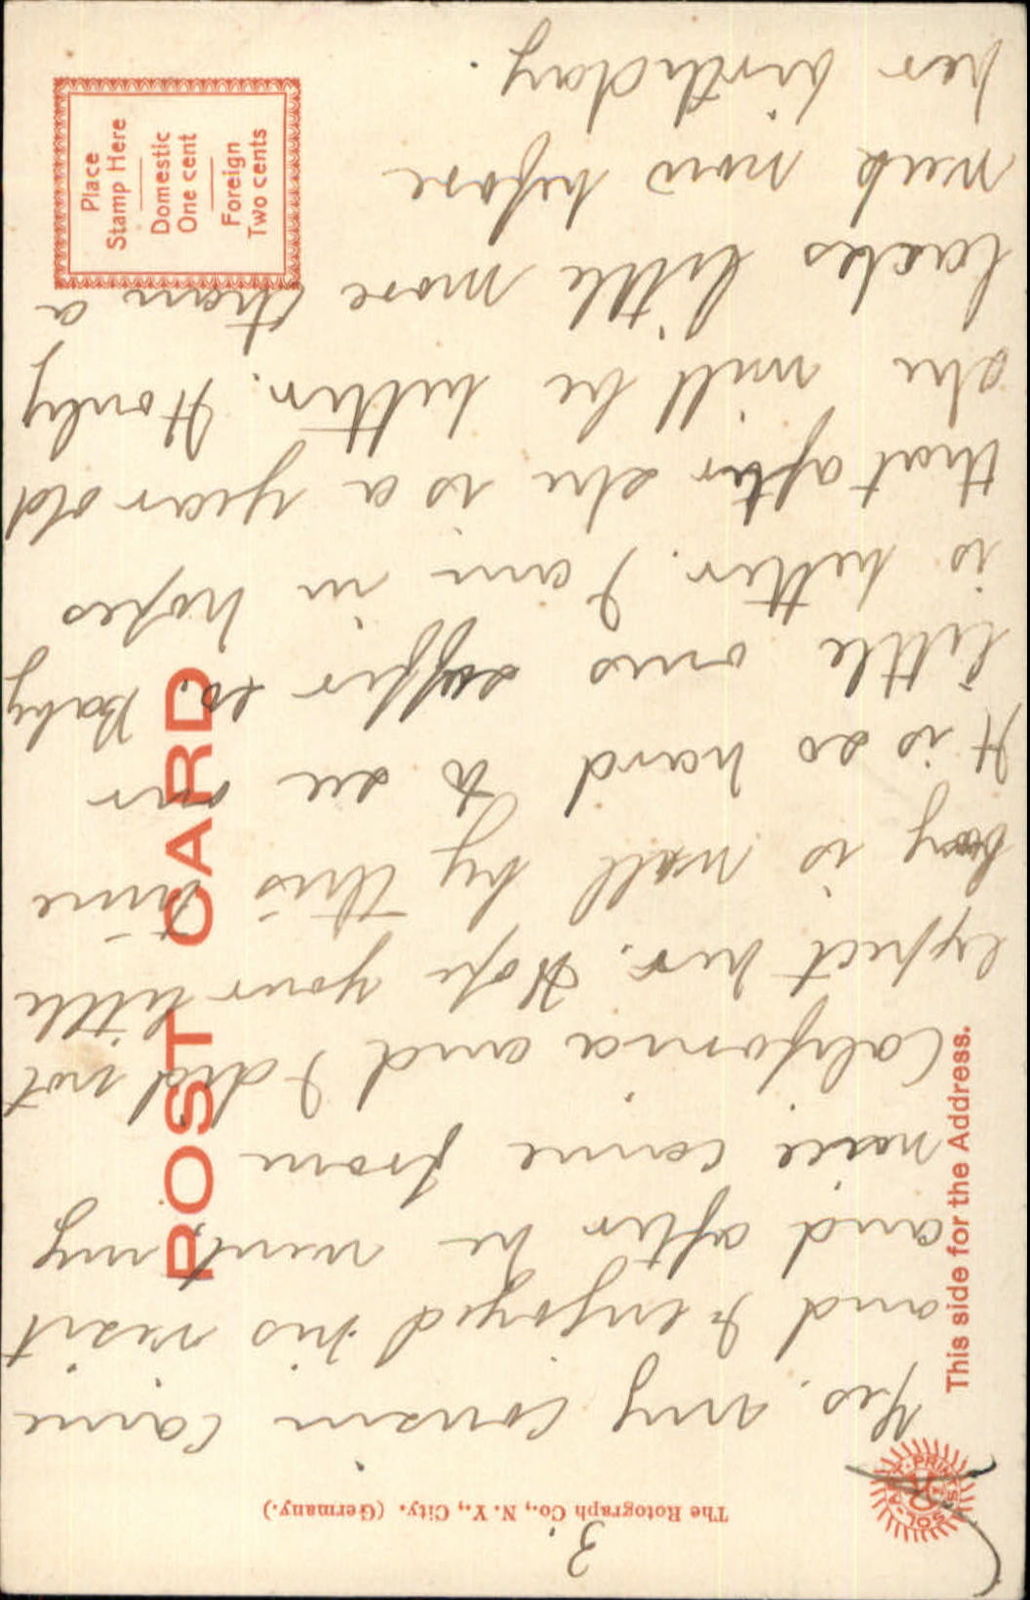 3.
The Rotograph Co., N. Y., City. (Germany.)
SOL-ART-PRINTS
Yes. my cousin came
and I enjoyed his visit
and after he went, my
neice came from
California and I did not
expect her. Hope your little
boy is well by this time
It is so hard to see our
little ones suffer so. Baby
is better. I am in hopes
that after she is a year old
she will be better. Honly
lacks little more than a
week now before
her birthday.
POST CARD
This side for the Address.
Place
Stamp Here
Domestic
One cent
Foreign
Two cents